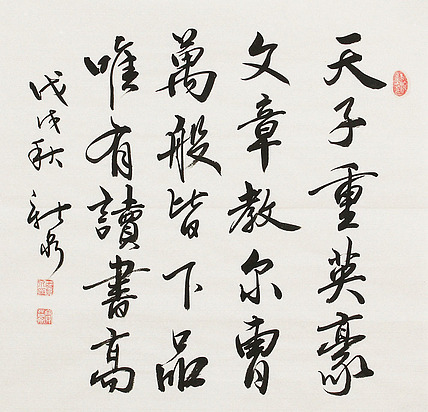 天子重英豪
文章教尔曹
萬般皆下品
唯有讀書高
戊戌秋